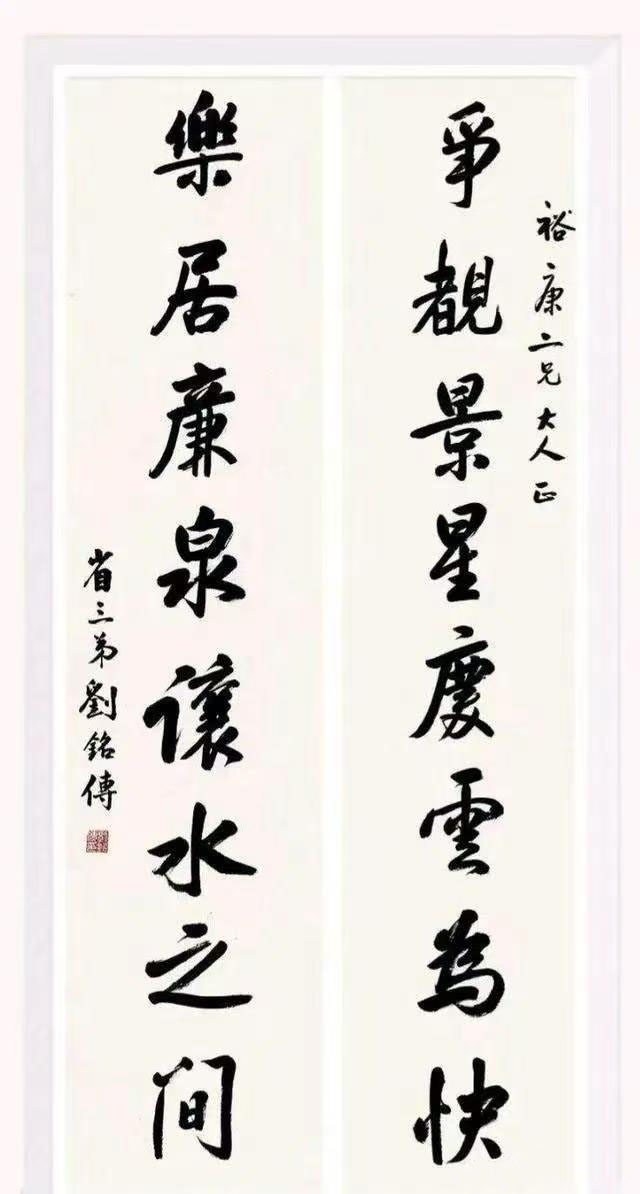 爭覩景星慶雲為快
裕康二兄大人正
樂居廉泉讓水之間
省三弟劉銘傳